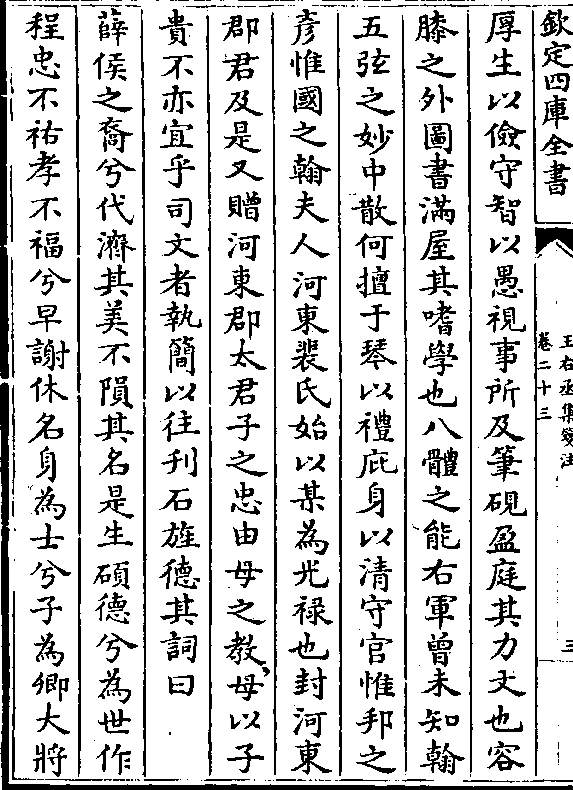 欽定四庫全書
王右丞集箋注
卷二十三
三
厚生以儉守智以愚視事所及筆硯盈庭其力文也容
膝之外圖書滿屋其嗜學也八體之能右軍曾未知翰
五弦之妙中散何擅于琴以禮庇身以清守官惟邦之
彥惟國之翰夫人河東裴氏始以某為光禄也封河東
郡君及是又贈河東郡太君子之忠由母之教母以子
貴不亦宜乎司文者執簡以往刋石旌德其詞曰
薛侯之裔兮代濟其美不隕其名是生碩德兮為世作
程忠不祐孝不福兮早謝休名身為士兮子為卿大將